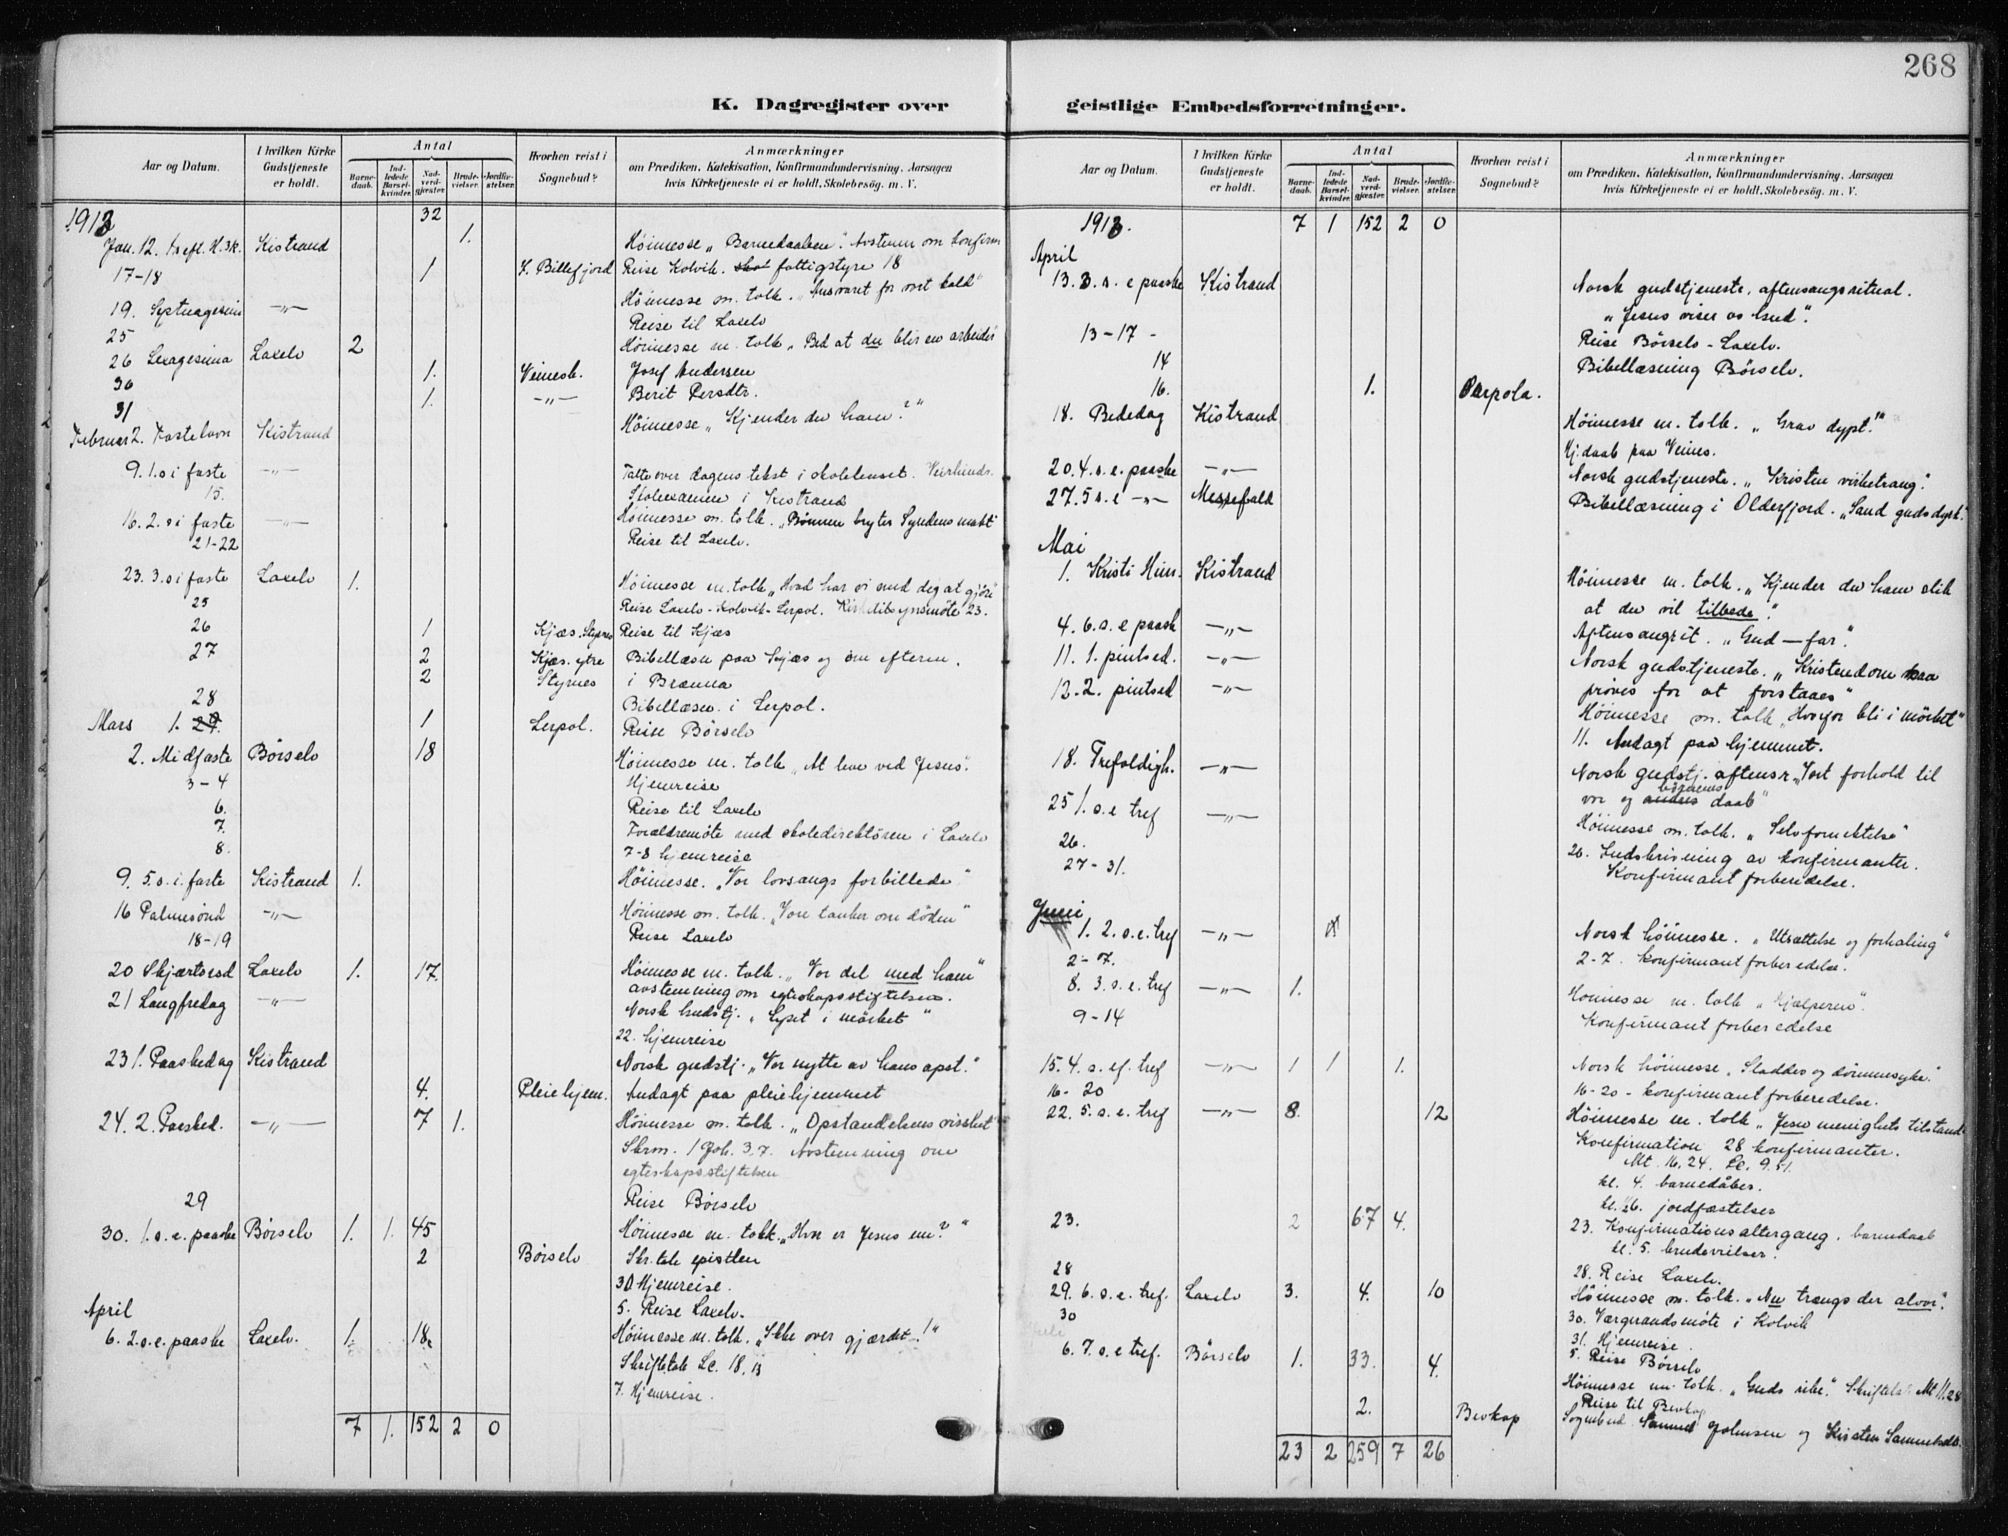 268
K. Dagregister over
Aar og Datum.
I hvilken Kirke Gudstjeneste er holdt.
Antal
Barne-daab.
Ind-ledede Barsel-kvinder.
Nad-verd-gjester.
Brude-vielser.
Jordfæ-stelser.
Hvorhen reist i Sognebud?
Anmærkninger
om Prædiken, Katekisation, Konfirmandundervisning, Aarsagen
hvis Kirketjeneste ei er holdt, Skolebesøg. m. V.
1913 32
Jan. 12. 1 s efl. H. 3 k. Kistrand 1. Høimesse „Barnedaaben". Avstemn om konfirm
17-18 1 Y. Billefjord Reise Kolvik. fattigstyre 18
19. Septuagesima —„— Høimesse m. tolk. „Ansvaret for vort kald"
25 Reise til Laxelv
26 Sexagesima Laxelv 2 Høimesse m. tolk „Bed at du blir en arbeider
30 1. Veinesb. Josef Andersen
31 1. —„— Berit Persdtr
Februar 2. Fastelavn Kistrand Høimesse „Kjender du ham?"
9. 1. s i faste —„— Tatte over dagens tekst i skolehuset.
15. Skoleexamen i Kistrand
16. 2. s i faste —„— Høimesse m. tolk. „Bønnen bryter Syndens makt
21-22 Reise til Laxelv.
23. 3. s i faste Laxelv 1. Høimesse m. tolk „Hvad har vi med dig at gjøre"
25 Reise Laxelv - Kolvik - Lerpol. Kirketilsynsmøte 23.
26 1 Kjæs. Styrnes Reise til Kjæs
27 2 Kjæs. ytre Bibellæsn paa Kjæs og om efterm.
2 Styrnes i Brænna
28 Bibellæsn. i Lerpol.
Mars 1. 29. 1 Lerpol. Reise Børselv
2. Midfaste Børselv 18 Høimesse m. tolk „At leve ved Jesus".
3-4 Hjemreise
6. Reise til Laxelv
7. Forældremøte med skoledirektøren i Laxelv
8. 7-8 hjemreise
9. 5. s. i. faste Kistrand 1. Høimesse. „Vor lovsangs forbillede"
16 Palmesønd —„— Høimesse m. tolk. „Vore tanker om döden"
18-19 Reise Laxelv
20 Skjærtorsd Laxelv 1. 17. Høimesse m. tolk. „Vor del med ham"
avstemning om egteskapsstiftelsen.
21 Langfredag —„— Norsk Gudstj. „Lyset i mørket"
22. hjemreise
23 1. Paaskedag Kistrand Norsk gudstj. „Vor nytte av hans opst."
4. Pleiehjem. Andagt paa pleiehjemmet
24. 2. Paasked. —„— 7 1. Høimesse m. tolk. „Opstandelsens visshet
Skrm. 1 Joh. 3,7. Avstemning om
egteskapsstiftelsen
29 Reise Børselv
30. 1. s. e. paaske Børselv 1. 1. 45 Høimesse m. tolk. „Hvor er Jesus nu?"
2 Børselv Skr. tale epistlen
30 Hjemreise.
April 5. Reise Laxelv.
6. 2. s. e. paaske Laxelv. 1. 18. Høimesse m. tolk. „Ikke over gjærdet!"
Skriftetale Lc. 18, 13
7. Hjemreise.
7 1. 152 2 0
geistlige Embedsforretninger.
Aar og Datum.
I hvilken Kirke Gudstjeneste er holdt.
Antal
Barne-daab.
Ind-ledede Barsel-kvinder.
Nad-verd-gjester.
Brude-vielser.
Jordfæ-stelser.
Hvorhen reist i Sognebud?
Anmærkninger
om Prædiken, Katekisation, Konfirmandundervisning, Aarsagen
hvis Kirketjeneste ei er holdt, Skolebesøg. m. V.
1913. 7 1 152 2 0
April
13. 3. s. e paaske Kistrand Norsk gudstjeneste. aftensangsritual.
„Jesus viser os Gud".
13-17 - Reise Børselv - Laxelv.
14 Bibellæsning Børselv.
16. 1. Porpola.
18. Bededag Kistrand Høimesse m. tolk. „Grav dypt!"
Hj. daab paa Veines.
20. 4. s. e. paaske —„— Norsk gudstjeneste. „Kristen virketrang."
27. 5 s. e —„— Messefald Bibellæsning i Olderfjord. „Sand gudsdyrk."
Mai
1. Kristi Him. Kistrand Høimesse m. tolk. „Kjender du ham slik
at du vil tilbede."
4. 6. s. e paask —„— Aftensangrit. „Gud — far".
11. 1. pintsed. —„— Norsk gudstjeneste. „Kristendom maa
prøves for at forstaaes"
12. 2. pintsed —„— Høimesse m. tolk „Hvorfor bli i mørket"
11. Andagt paa hjemmet.
18. Trefoldigh. —„— Norsk gudstj. aftensr. „Vort forhold til
vor og børnenes daab"
25 1. s. e tref —„— Høimesse m. tolk. „Selvfornektelse"
26. 26. Indskrivning av konfirmanter.
27-31. Konfirmantforberedelse.
Juni
1. 2. s. e. tref —„— Norsk høimesse. „Utsættelse og forhaling"
2-7. 2-7. Konfirmantforberedelse.
8. 3. s. e. tref —„— 1. Høimesse m. tolk „Hjælperen".
9-14 Konfirmantforberedelse
15. 4. s. ef. tref —„— 1 1 1. Norsk høimesse „Sladder og dømmesyke."
16-20 16-20 - konfirmantforberedelse.
22. 5. s. e. tref —„— 8. 12 Høimesse m. tolk „Jesu menighets tilstand"
Konfirmation 28 konfirmanter.
Mt. 16,24. Lc. 9.51.
kl. 4. barnedåber.
kl. 26. jordfæstelser
23. 2 67 4. 23. Konfirmationsaltergang. barnedaab
kl. 5. brudevielser.
28 28. Reise Laxelv.
29. 6. s. e. tref. Laxelv 3. 4. 10 Høimesse m. tolk. „Nu trængs der alvor".
30 30. Værgeraadsmöte i Kolvik
Juli 31. Hjemreise.
5. Reise Børselv
6. 7. s. e tref. Børselv 1. 33. 4. Høimesse m. tolk. „Guds rike". Skriftet. Mt 11.28
2. Bevkop Reise til Bevkop
Sognebud. Samuel Johnsen og Kirsten
23 2 259 7 26